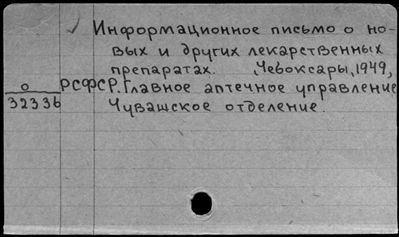 ✓ Информационное письмо о но-
вых и других лекарственных
препаратах. Чебоксары, 1949,
о РСФСР. Главное аптечное управление
32336 Чувашское отделение.